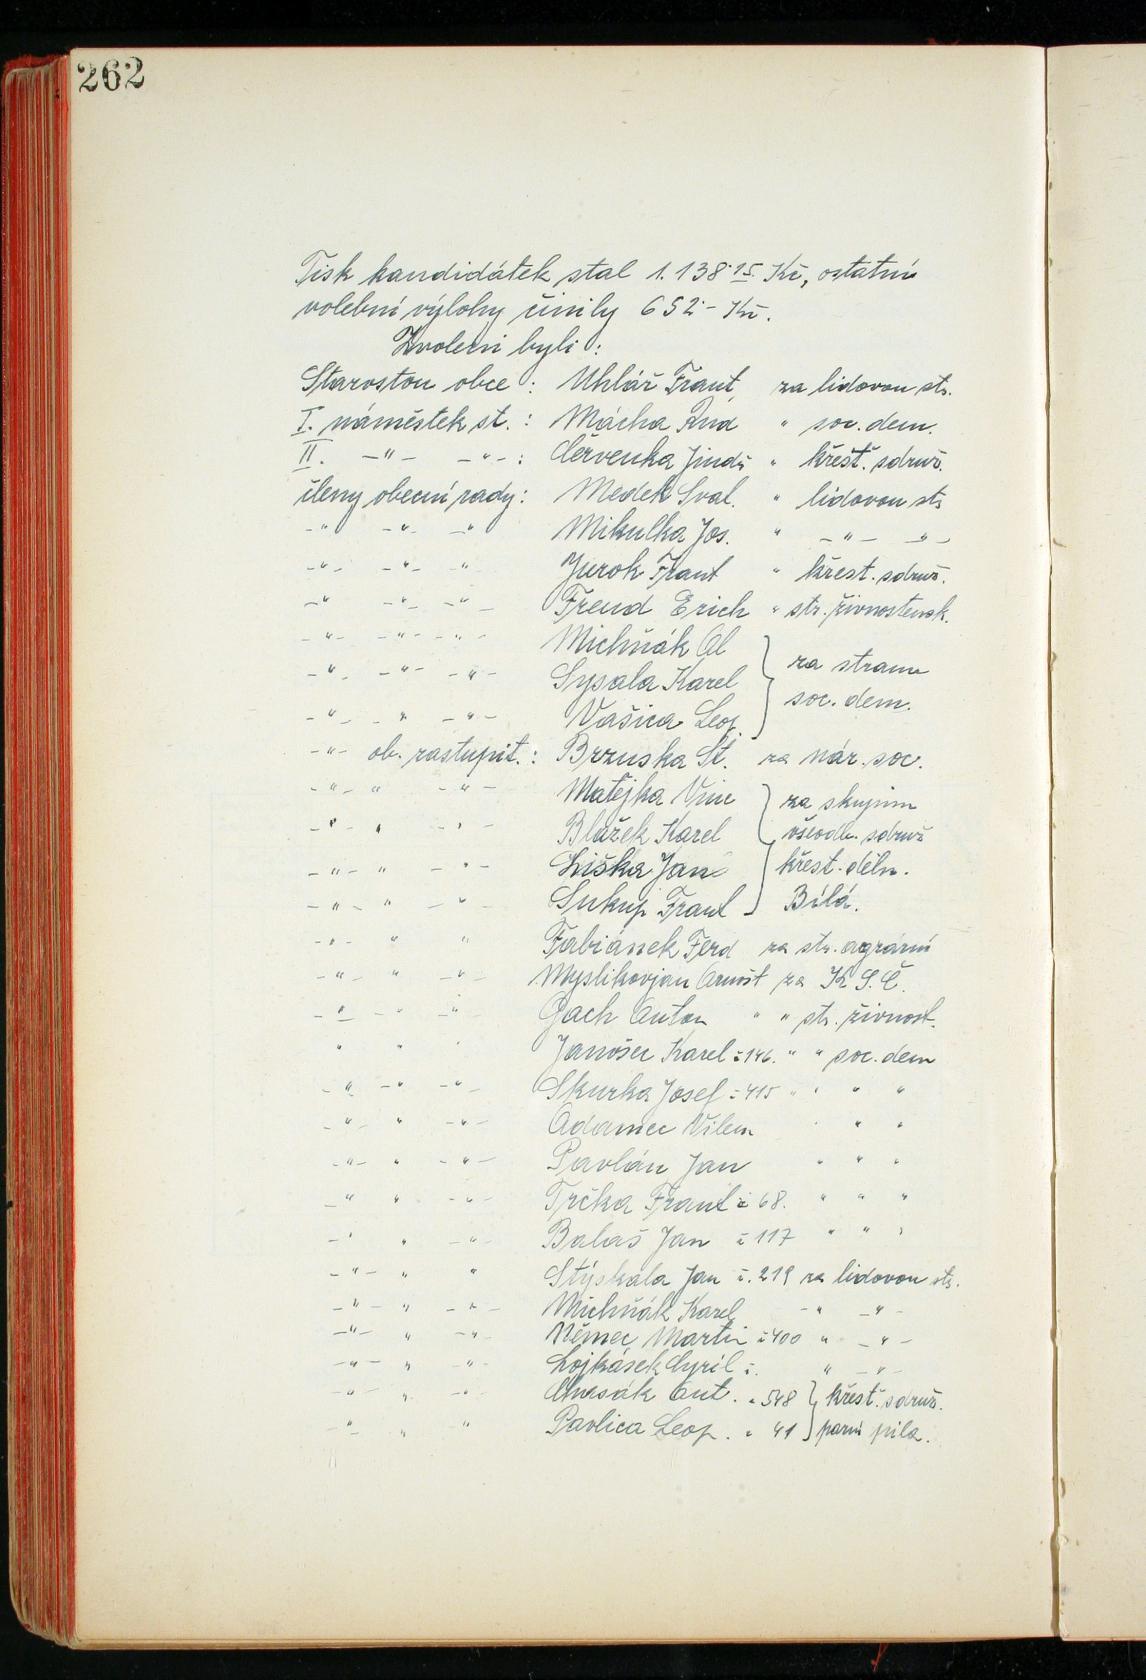 262
Tisk kandidátek stal 1.138·15 Kč, ostatní
volební výlohy činily 652·- Kč.
Zvoleni byli:
Starostou obce: Uhlář Frant. za lidovou str.
I. náměstek st.: Mácha Rud " soc. dem.
II. -"- -"-: Červenka Jindř " křesť. sdruž.
členy obecní rady: Medek Sval. " lidovou str
-"- -"- -"- Mikulka Jos. " -"- -"-
-"- -"- -"- Jurok Frant " křest. sdruž.
-"- -"- -"- Freud Erich " str. živnostensk.
-"- -"- -"- Michňák Al } za stranu
-"- -"- -"- Sysala Karel
-"- -"- -"- Vašica Leop. soc. dem.
-"- ob. zastupit.: Brzuska St. za nár. soc.
-"- " -"- Matějka Vinc } za skupinu
-"- " -"- Blažek Karel všeodb. sdruž
-"- " -"- Liška Jan křest. děln.
-"- " -"- Sukup Frant Bílá.
-"- " " Fabiánek Ferd za str. agrární
-"- " -"- Myslikovjan Arnošt za K.S.Č.
-"- -"- -"- Gach Anton " " str. živnost.
" " " Janošec Karel č 146. " " soc. dem
-"- -"- -"- Skurka Josef č 415 " " " "
-"- " -"- Adamec Vilem " " "
-"- " -"- Pavlán Jan " " "
-"- " -"- Trčka Frant č 68. " " "
-"- " -"- Balaš Jan č 117 " " "
-"- " " Stýskala Jan č. 219 za lidovou str.
-"- " -"- Michňák Karel -"- -"-
-"- " -"- Němec Martin č 400 " -"-
-"- " -"- Lojkásek Cyril č. " -"-
-"- " -"- Chasák Ant. " 548 } křest. sdruž.
-"- " " Pavlica Leop. " 41 parní pila.